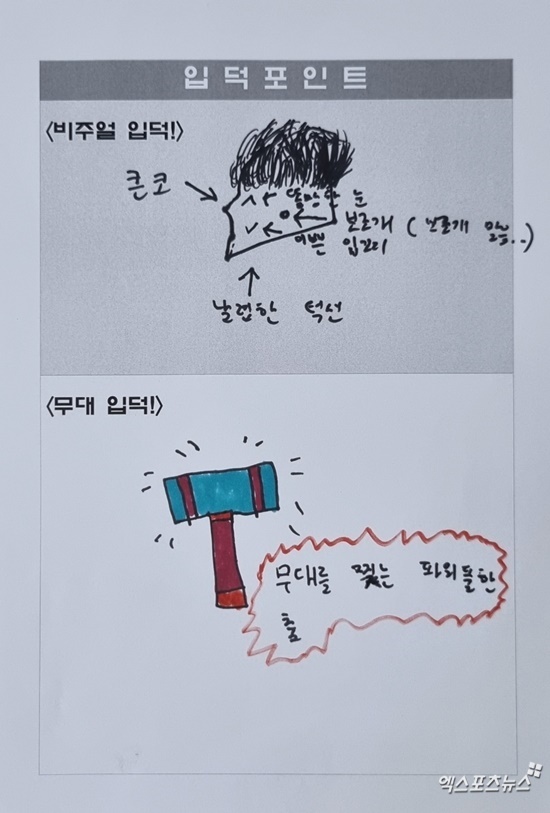 입덕포인트
<비주얼 입덕!>
큰 코
똘망한 눈
보조개 (보조개 맞음..)
이쁜 입꼬리
날렵한 턱선
<무대 입덕!>
무대를 찢는 파워풀한
춤
엑스포츠뉴스